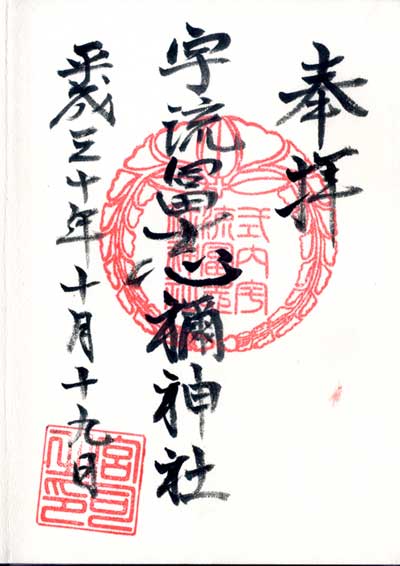 奉拝
宇流冨志禰神社
平成三十年十月十九日
式内宇
流冨志
宮司
之印